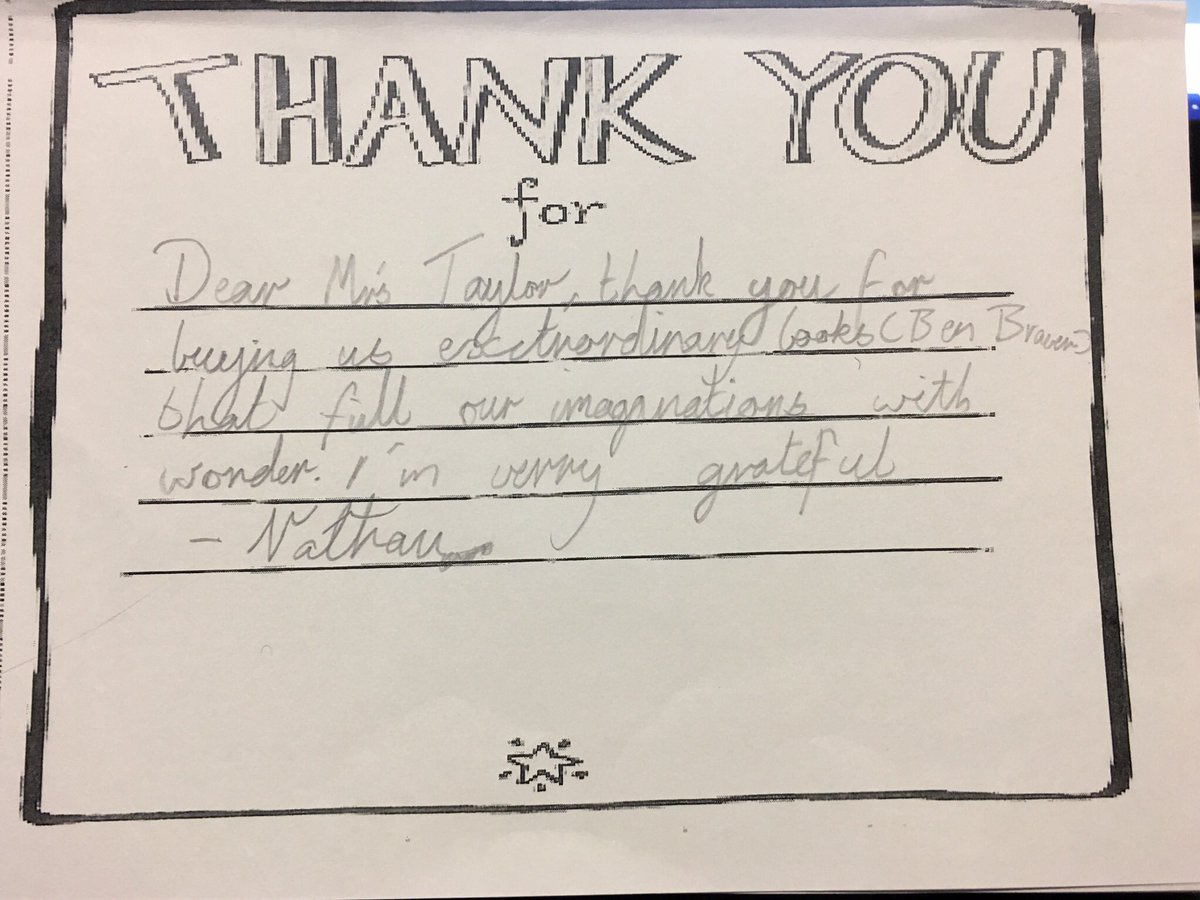 THANK YOU
for
Dear Mr's Taylor, thank you for
buying us esctrordinary books (Ben Braver)
that full our imagnations with
wonder. I'm verry grateful
- Nathan